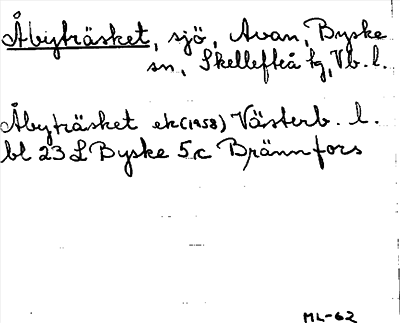 Åbyträsket, sjö, Avan, Byske
sn, Skellefteå kg, Vb. l.
Åbyträsket ek (1958) Västerb. l.
bl 23 L Byske 5 c Brännfors
ML-62